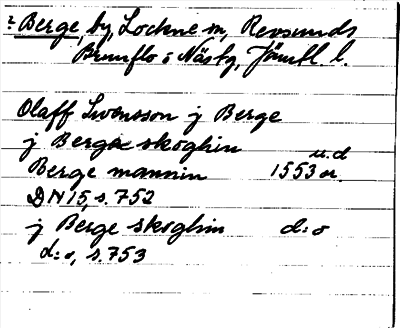 ? Berge, by, Lockne sn, Revsunds
Brunflo o Näs tg, Jämtl l.
Olaff Swensson j Berge
j Berge skoghin
u.d
Berge mannin 1553 or.
DN 15, s. 752
j Berge skoghin d:o
d:o, s. 753